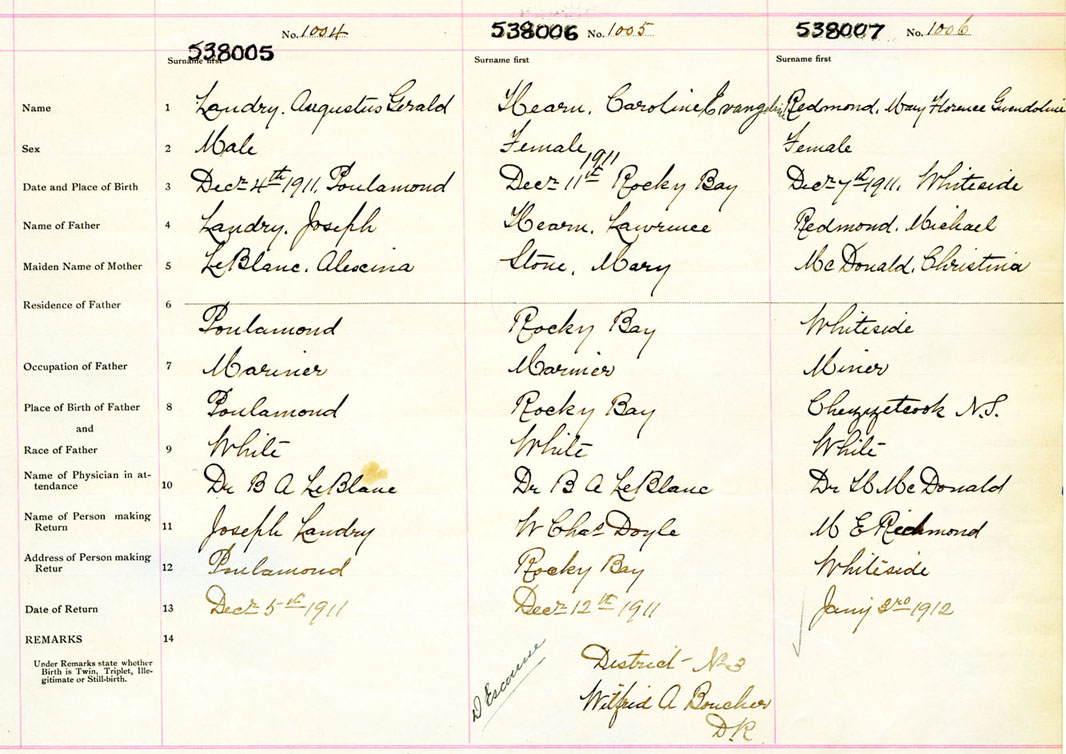 No. 1004 538006 No. 1005 538007 No. 1006
538005
Surname first Surname first Surname first
Name 1 Landry. Augustus Gerald Hearn, Caroline Evangeline Redmond, Mary Florence Gwendoline
Sex 2 Male Female Female
1911
Date and Place of Birth 3 Decr 4th 1911, Poulamond Decr 11th Rocky Bay Decr 7th 1911. Whiteside
Name of Father 4 Landry. Joseph Hearn. Lawrence Redmond. Michael
Maiden Name of Mother 5 LeBlanc. Alescina Stone, Mary McDonald, Christina
Residence of Father 6
Poulamond Rocky Bay Whiteside
Occupation of Father 7 Mariner Mariner Miner
Place of Birth of Father 8 Poulamond Rocky Bay Chezzetcook N.S.
and
Race of Father 9 White White White
Name of Physician in at-
tendance 10 Dr B A LeBlanc Dr B A LeBlanc Dr H McDonald
Name of Person making
Return 11 Joseph Landry W Chas Doyle M E Richmond
Address of Person making
Retur 12 Poulamond Rocky Bay Whiteside
Date of Return 13 Decr 5th 1911 Decr 12th 1911 Jany 3rd 1912
REMARKS 14
Under Remarks state whether
Birth is Twin, Triplet, Ille-
gitimate or Still-birth.
District No 3
Wilfrid A Boucher
DR